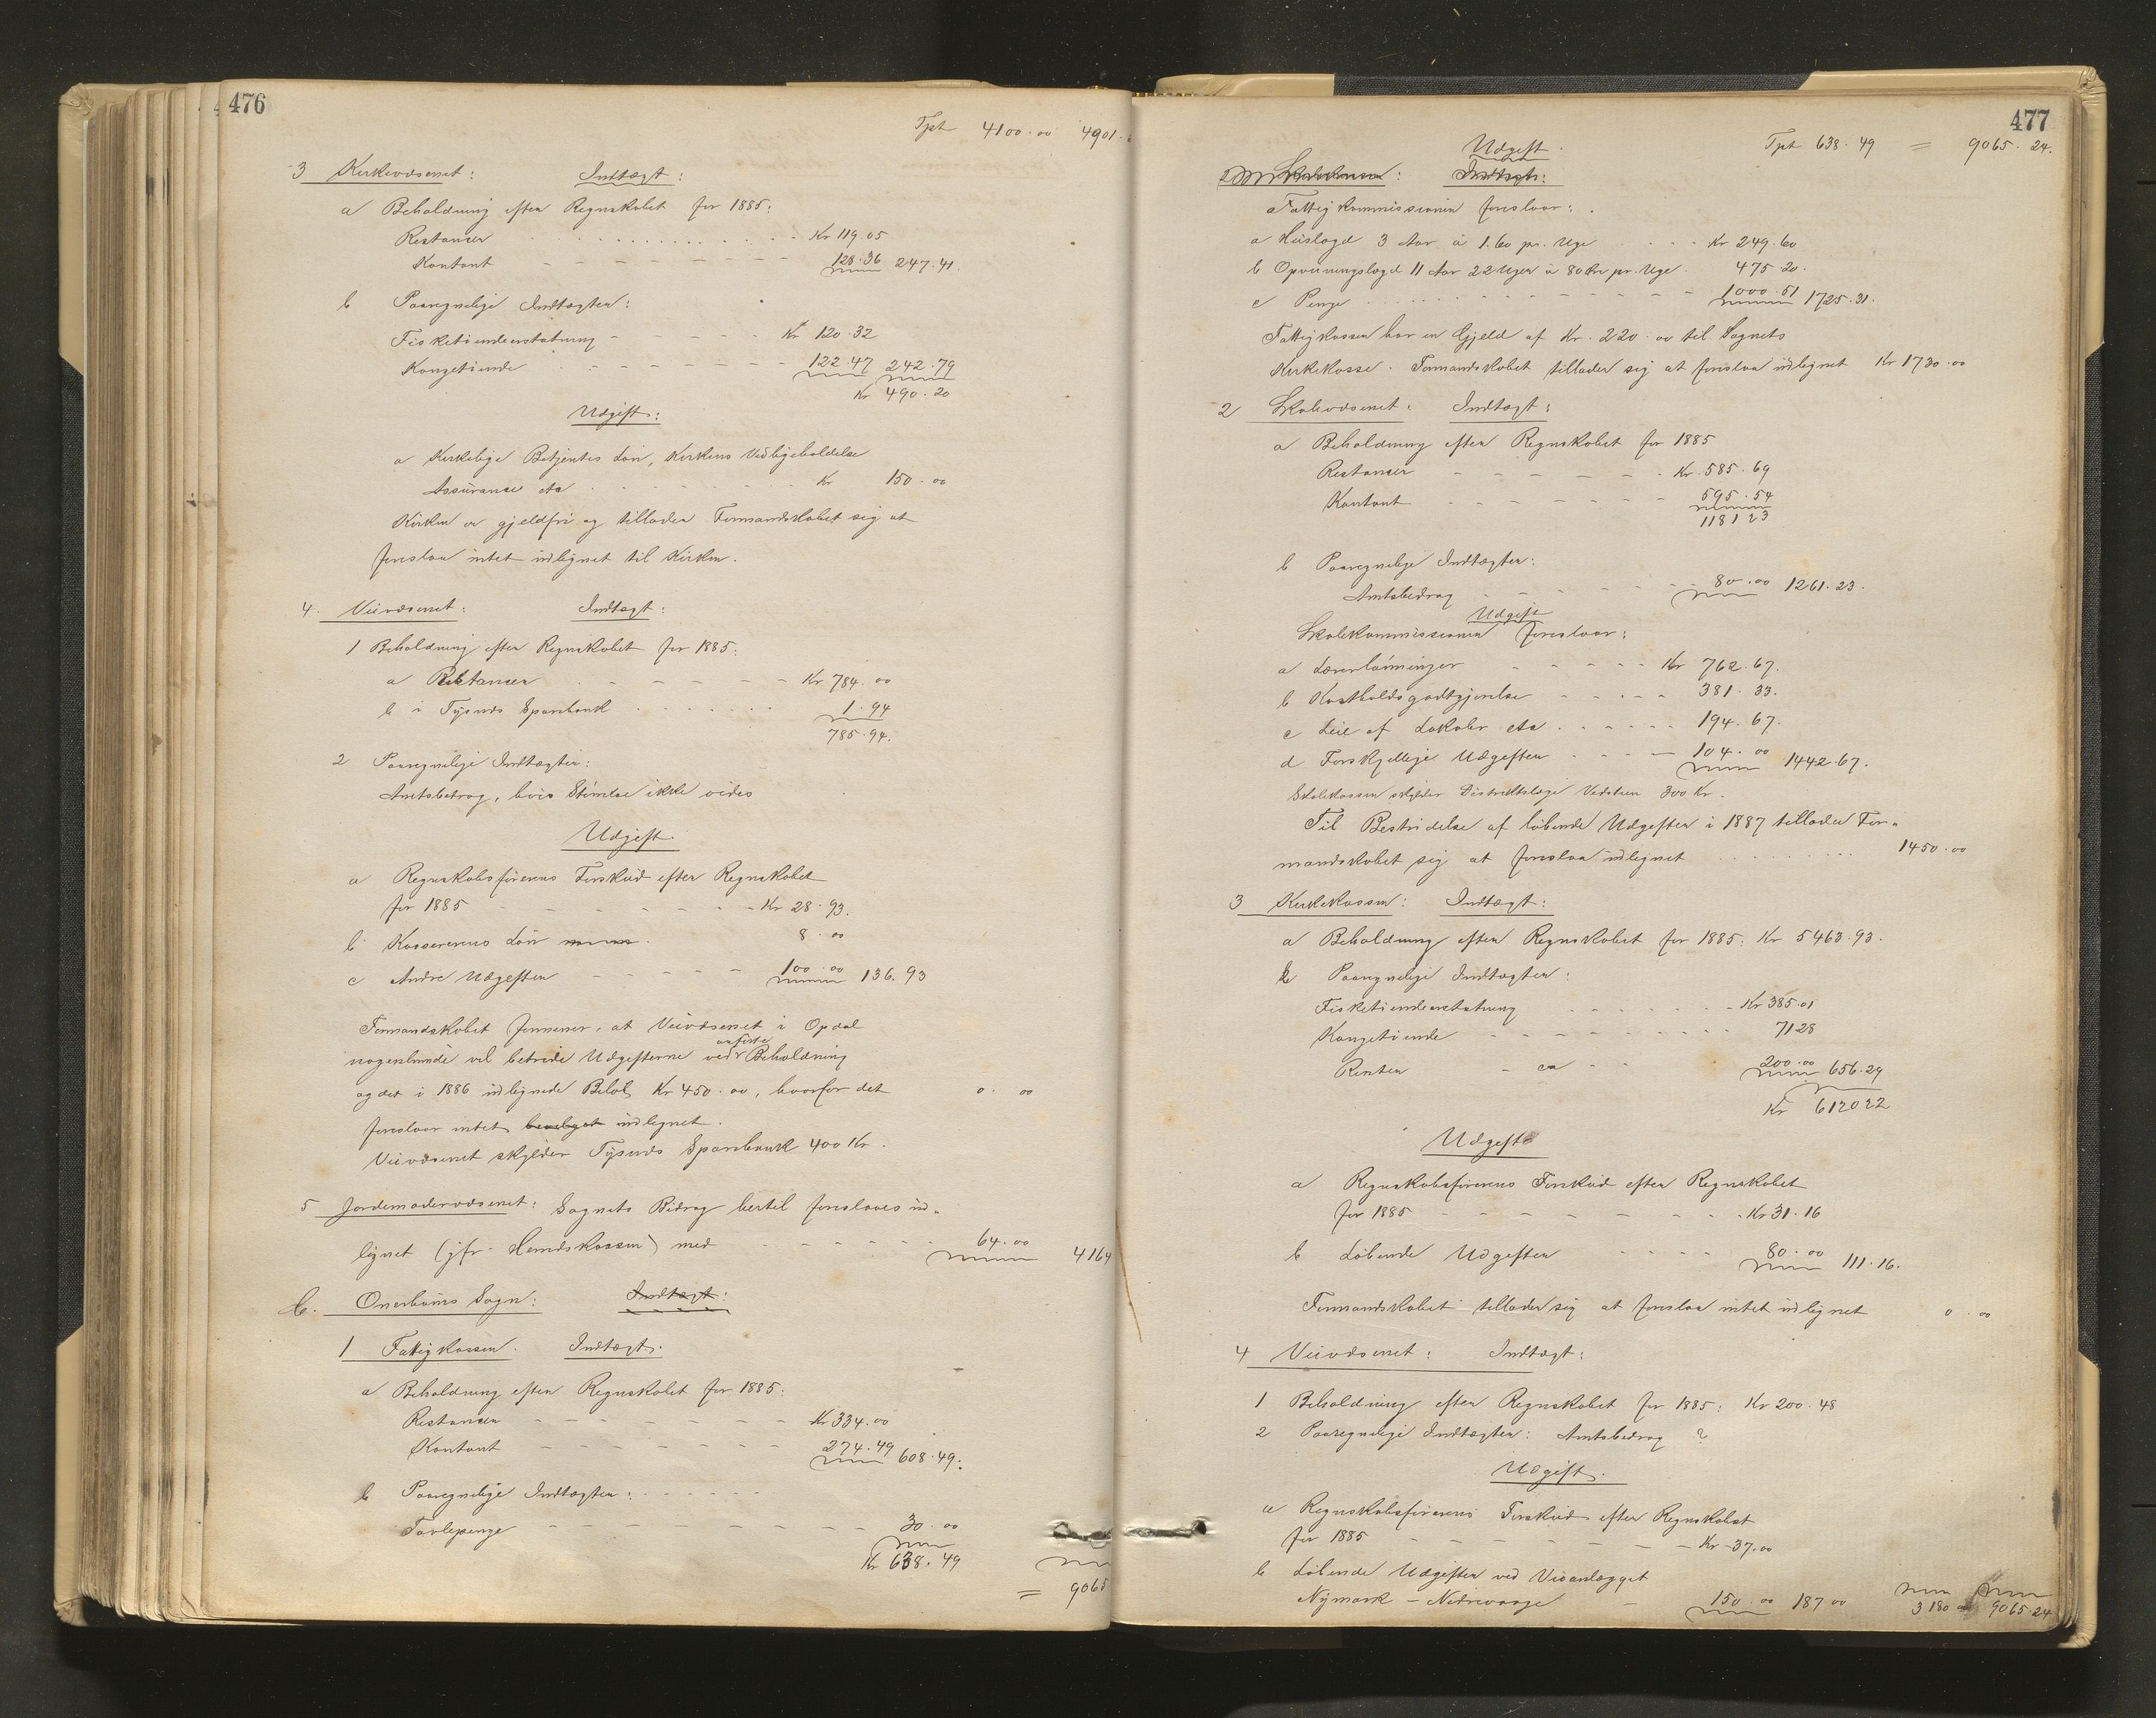 476
Tpt 4100.00 4901.
3 Kirkevæsenet: Indtægt:
a Beholdning efter Regnskabet for 1885:
Restancer Kr 119.05
Kontant 128.36 247.41.
b Paaregnelige Indtægter:
Fisketiendeerstatning Kr 120.32
Kongetiende 122.47 242.79
Kr 490.20
Udgift:
a Kirkelige Betjentes Løn, Kirkens Vedligeholdelse
Assurance etc Kr 150.00
Kirken er gjeldfri og tillader Formandskabet sig at
foreslaa intet udlignet til Kirken.
4. Veivæsenet: Indtægt:
1 Beholdning efter Regnskabet for 1885:
a Restancer Kr 784.00
b i Tysnes Sparebank 1.94
785.94.
2 Paaregnelige Indtægter:
Amtsbetrag, hvis Størrelse ikke vides
Udgift.
a Regnskabsførerens Forskud efter Regnskabet
for 1885 Kr 28.93.
b Kassererens Løn 8.00
c Andre Udgifter 100.00 136.93
Formandskabet formener, at Veivæsenet i Opdal
anførte
nogenlunde vil betride Udgifterne ved Beholdning
og det i 1886 udlignede Beløb Kr 450.00, hvorfor det 0.00
foreslaar intet udlignet.
Veivæsenet skylder Tysnes Sparebank 400 Kr.
5 Jordemodervæsenet: Sognets Bidrag hertil foreslaaes ud-
lignet (jfr. Herredskassen) med 64.00 4164
b. Onarheims Sogn: Indtægt:
1 Fattigkassen. Indtægt.
a Beholdning efter Regnskabet for 1885:
Restancer Kr 334.00
Kontant 274.49 608.49.
b Paaregnelige Indtægter:
Tavlepenge 30.00
Kr 638.49
= 9065
477
Tpt 638.49 = 9065.24.
Udgift.
Indtægt:
a Fattigkommissionen foreslaar:
a Huslægd 3 Aar à 1.60 pr. Uge Kr 249.60
b Oponingslægd 11 Aar 22 Uger à 80 Øre pr. Uge. 475.20.
c Penge 1000.51 1725.31.
Fattigkassen har en Gjeld af Kr. 220.00 til Sognets
Kirkekasse. Formandskabet tillader sig at foreslaa udlignet Kr 1730.00
2 Skolevæsenet: Indtægt:
a Beholdning efter Regnskabet for 1885
Restancer Kr. 585.69
Kontant 595.54
1181 23
b Paaregnelige Indtægter:
Amtsbedrag 80.00 1261.23.
Udgift
Skolekommissionen foreslaar:
a Lærerlønninger Kr 762.67.
b Kostholdsgodtgjørelse 381.33.
c Leie af Lokaler etc 194.67.
d Forskjellige Udgifter 104.00 1442.67.
Skolekassen skylder Distriktslæge 300 Kr.
Til Bestridelse af løbende Udgifter i 1887 tillader For-
mandskabet sig at foreslaa udlignet 1450.00
3 Kirkekassen: Indtægt:
a Beholdning efter Regnskabet for 1885: Kr 5463.93.
b Paaregnelige Indtægter:
Fisketiendeerstatning Kr 385.01
Kongetiende 71 28
Renter ca 200.00 656.29
Kr 6120 22
Udgift
a Regnskabsførerens Forskud efter Regnskabet
for 1885 Kr 31.16
b Løbende Udgifter 80.00 111.16.
Formandskabet tillader sig at foreslaa intet udlignet 0.00
4 Veivæsenet: Indtægt:
1 Beholdning efter Regnskabet for 1885: Kr 200.48
2 Paaregnelige Indtægter: Amtsbedrag ?
Udgift.
a Regnskabsførerens Forskud efter Regnskabet
for 1885 Kr 37.00
b Løbende Udgifter ved Veianlægget
Nymark - Nedrevaage 150.00 187 00 3180 9065.24